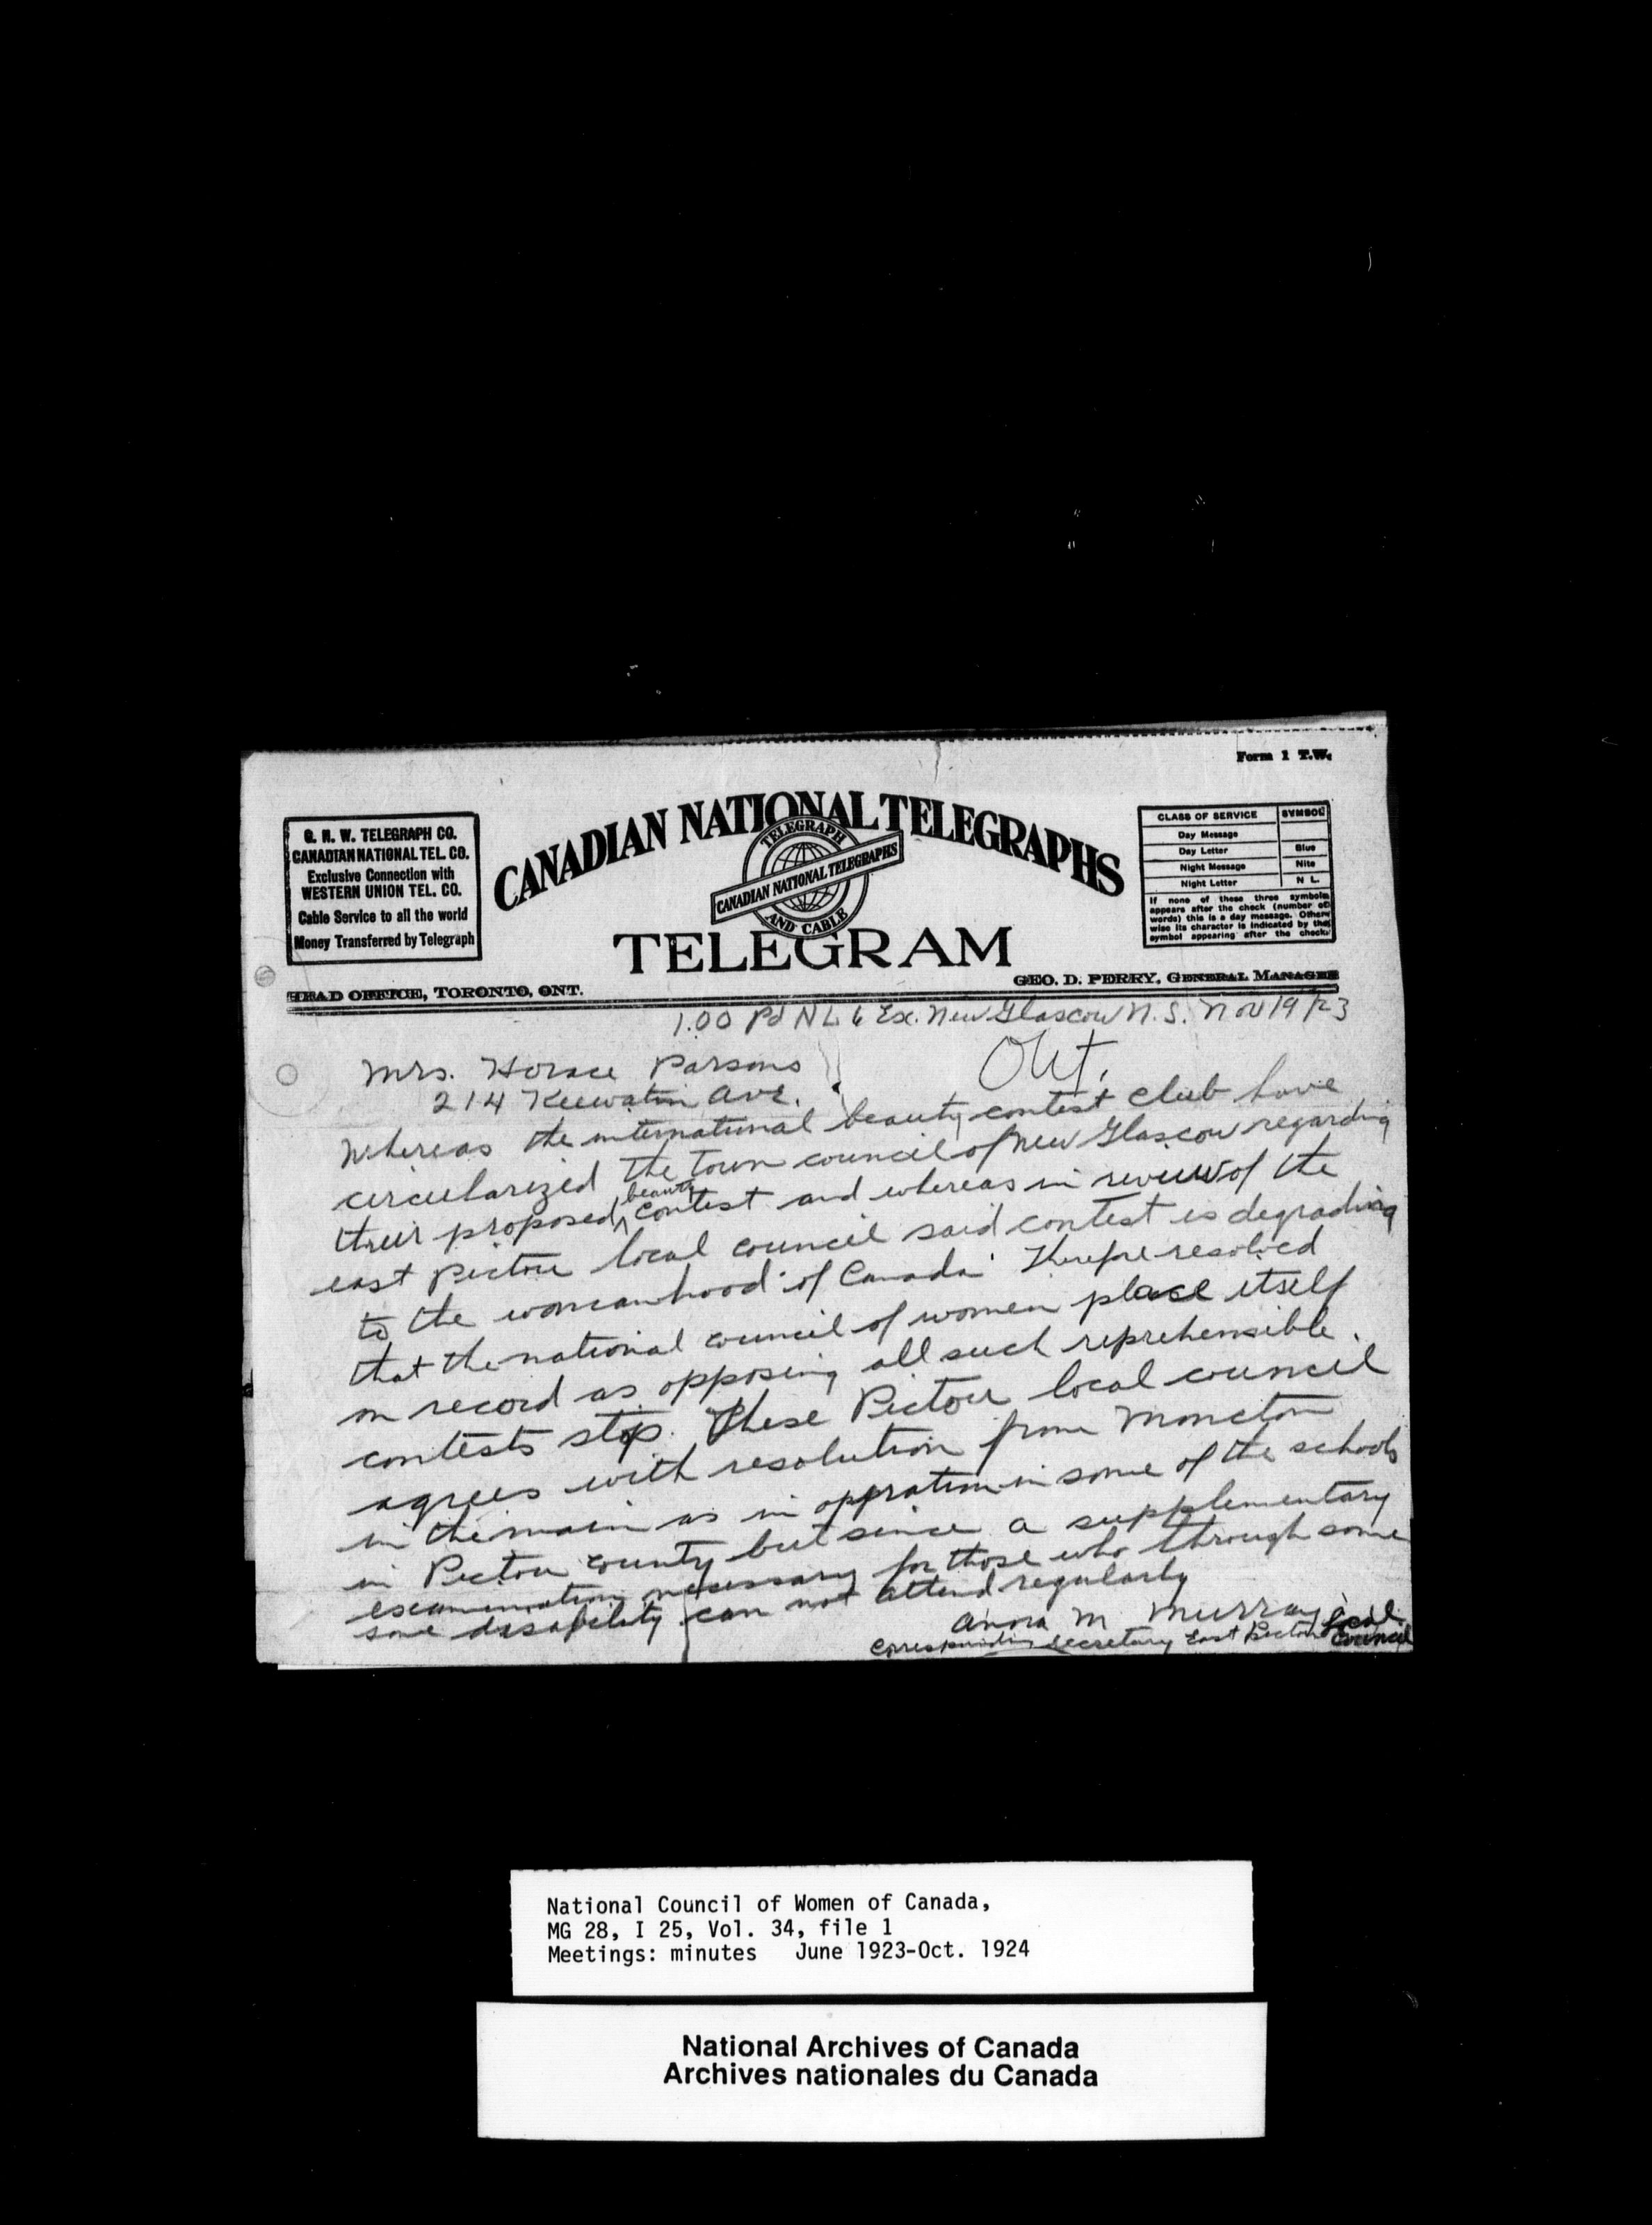 Form 1 T.W.
G. N. W. TELEGRAPH CO.
CANADIAN NATIONAL TEL. CO.
Exclusive Connection with
WESTERN UNION TEL. CO.
Cable Service to all the world
Money Transferred by Telegraph
CANADIAN NATIONAL TELEGRAPHS
TELEGRAPH
CANADIAN NATIONAL TELEGRAPHS
AND CABLE
TELEGRAM
CLASS OF SERVICE SYMBOL
Day Message
Day Letter Blue
Night Message Nite
Night Letter N L
If none of these three symbols
appears after the check (number of
words) this is a day message. Other
wise its character is indicated by the
symbol appearing after the check.
HEAD OFFICE, TORONTO, ONT.
GEO. D. PERRY, GENERAL MANAGER
1.00 Pd NL 6 Ex. New Glascow N.S. Nov 19/23
Mrs. Horace Parsons
214 Keewatin Ave. Ont.
Whereas the international beauty contest club have
circularized the town council of New Glascow regarding
their proposed beauty contest and whereas in review of the
east Pictou local council said contest is degrading
to the womanhood of Canada Therefore resolved
that the national council of women place itself
on record as opposing all such reprehensible.
contests stop. These Pictou local council
agrees with resolution from Moncton
in the main as in oppration in some of the schools
in Pictou county but since a supplementary
examination necessary for those who through some
some disability can not attend regularly
Anna M Murray
corresponding secretary East Pictou local
council
National Council of Women of Canada,
MG 28, I 25, Vol. 34, file 1
Meetings: minutes June 1923-Oct. 1924
National Archives of Canada
Archives nationales du Canada